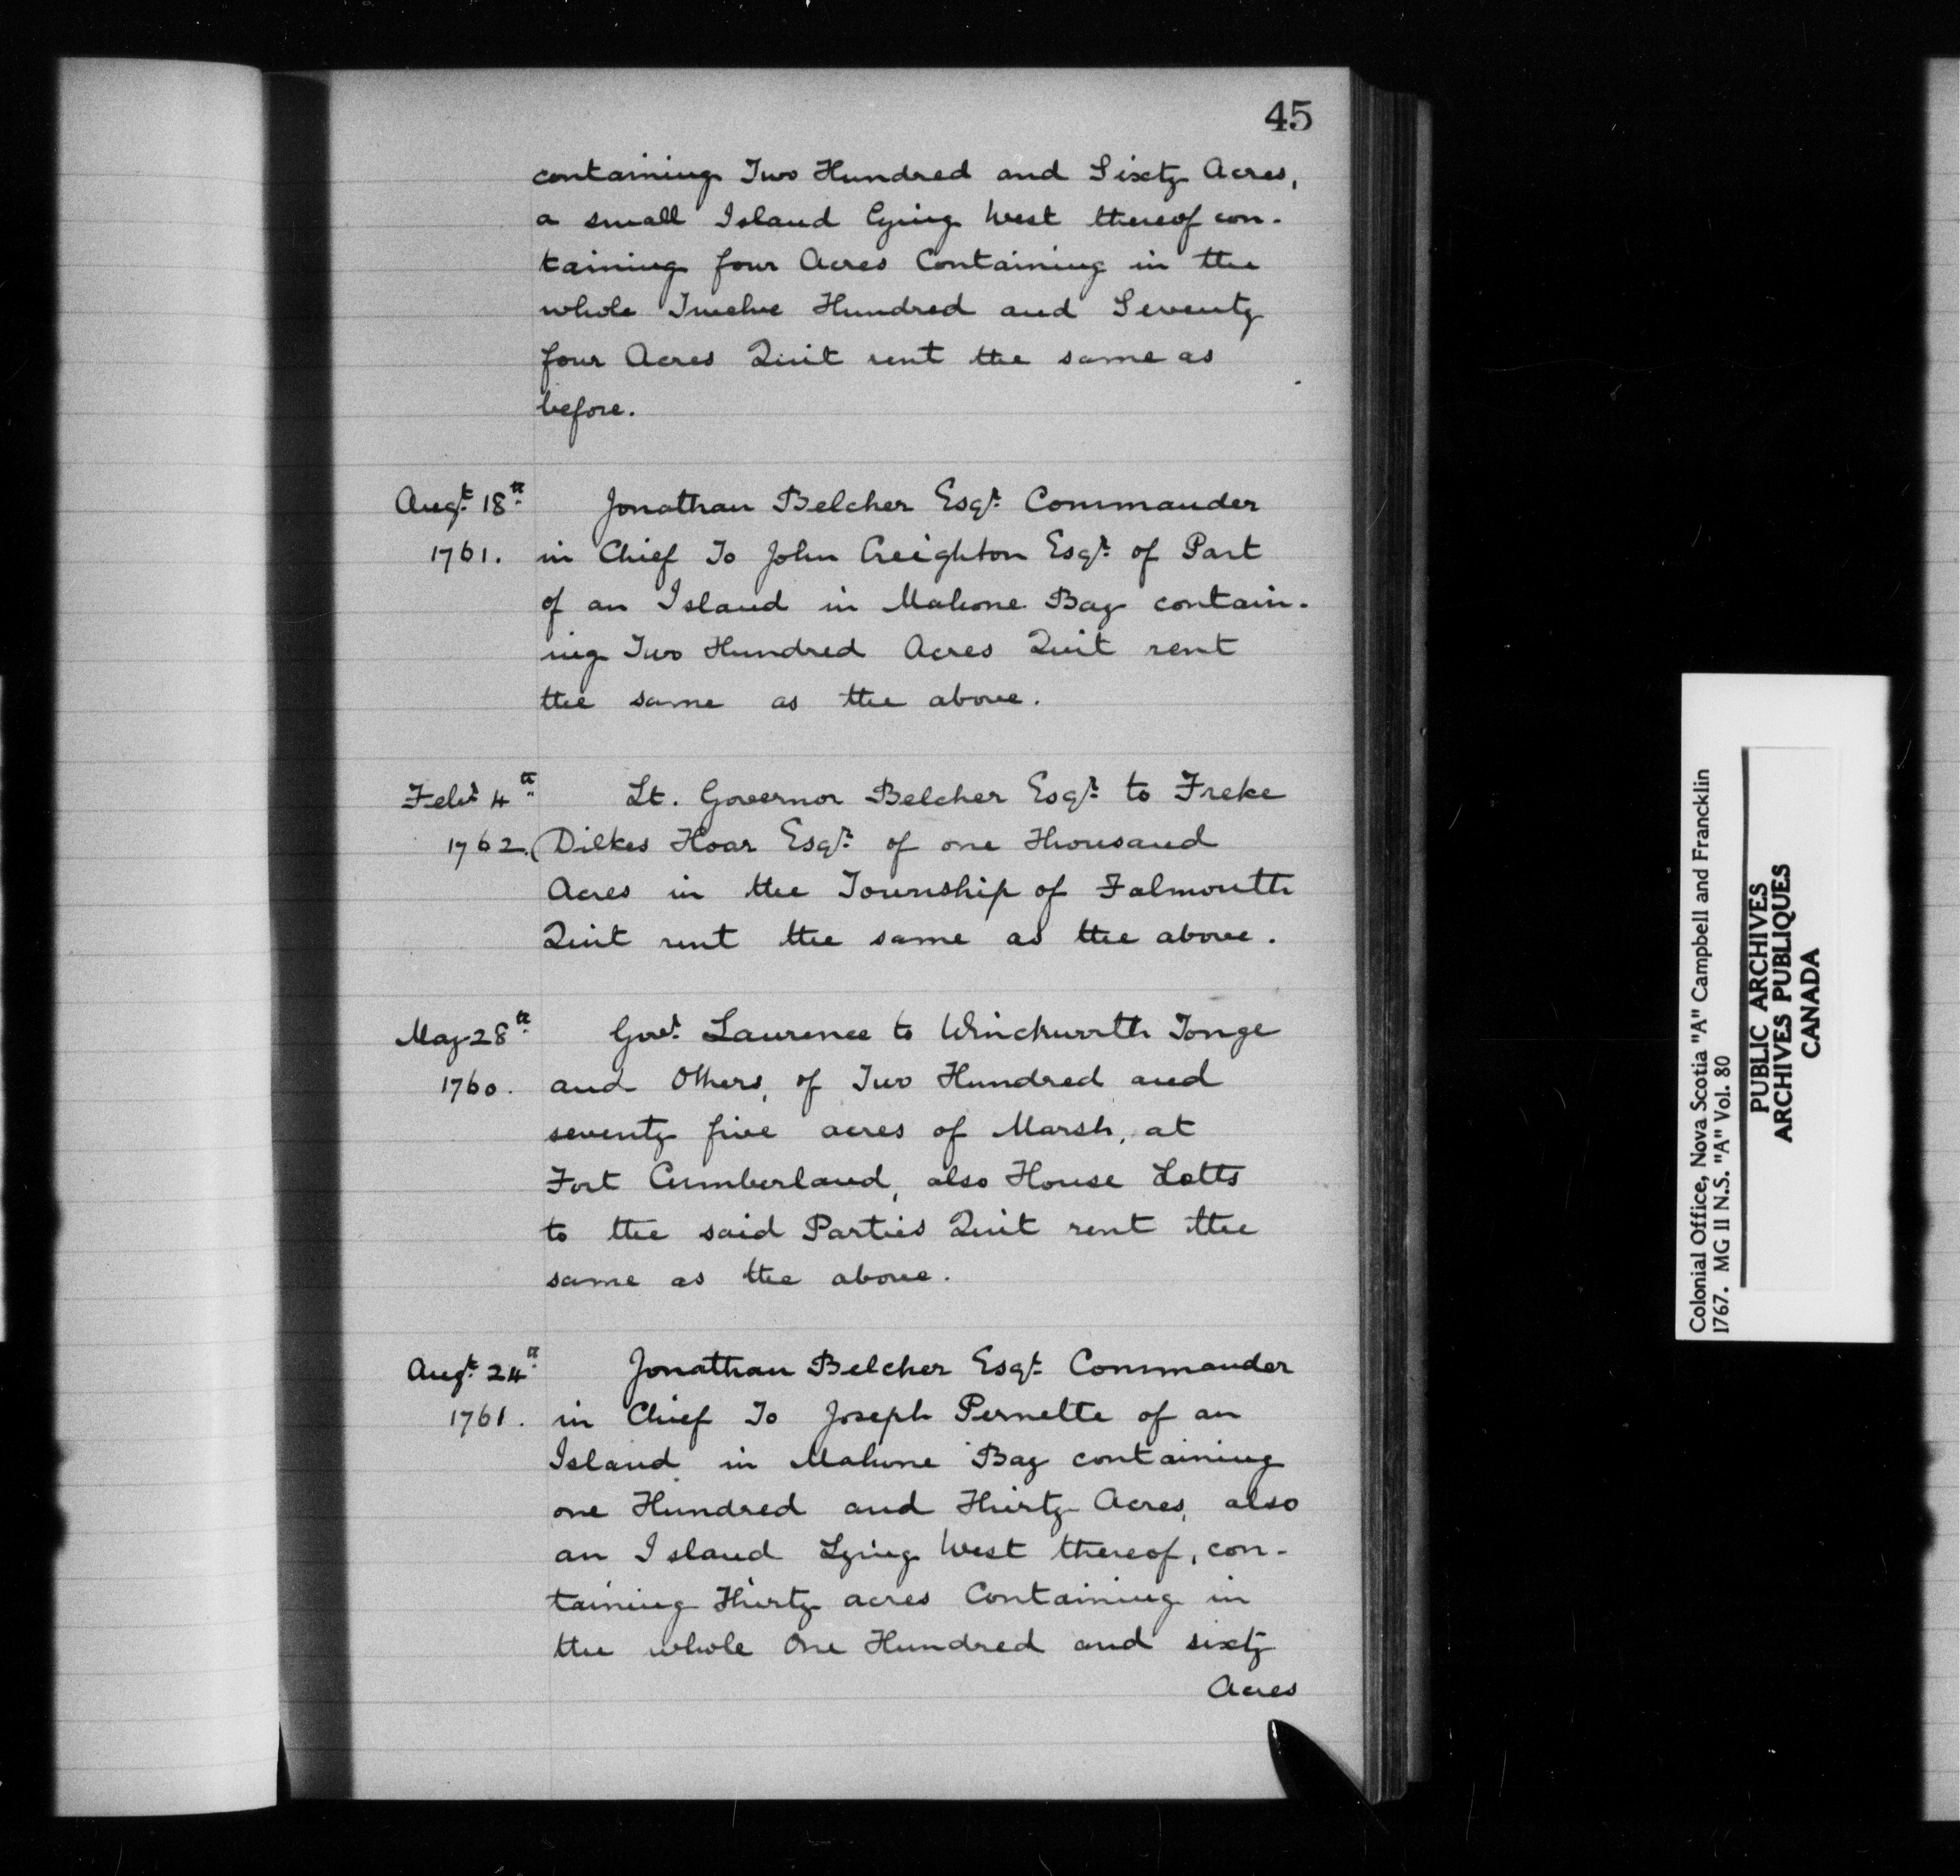 45
containing Two Hundred and Sixty Acres,
a small Island lying West thereof con-
taining four Acres Containing in the
whole Twelve Hundred and Seventy
four Acres Quit rent the same as
before.
Augt. 18th Jonathan Belcher Esqr. Commander
1761. in Chief To John Creighton Esqr. of Part
of an Island in Mahone Bay contain-
ing Two Hundred Acres Quit rent
the same as the above.
Febr. 4th Lt. Governor Belcher Esqr. to Freke
1762. Dilkes Hoar Esqr. of one Thousand
Acres in the Township of Falmouth
Quit rent the same as the above.
May 28th Govr. Laurence to Winckworth Tonge
1760. and Others, of Two Hundred and
seventy five acres of Marsh, at
Fort Cumberland, also House Lotts
to the said Parties Quit rent the
same as the above.
Augt. 24th Jonathan Belcher Esqr. Commander
1761. in Chief To Joseph Pernette of an
Island in Mahone Bay containing
one Hundred and Thirty Acres, also
an Island Lying West thereof, con-
taining Thirty acres Containing in
the whole One Hundred and sixty
Acres
Colonial Office, Nova Scotia "A" Campbell and Francklin
1767. MG II N.S. "A" Vol. 80
PUBLIC ARCHIVES
ARCHIVES PUBLIQUES
CANADA